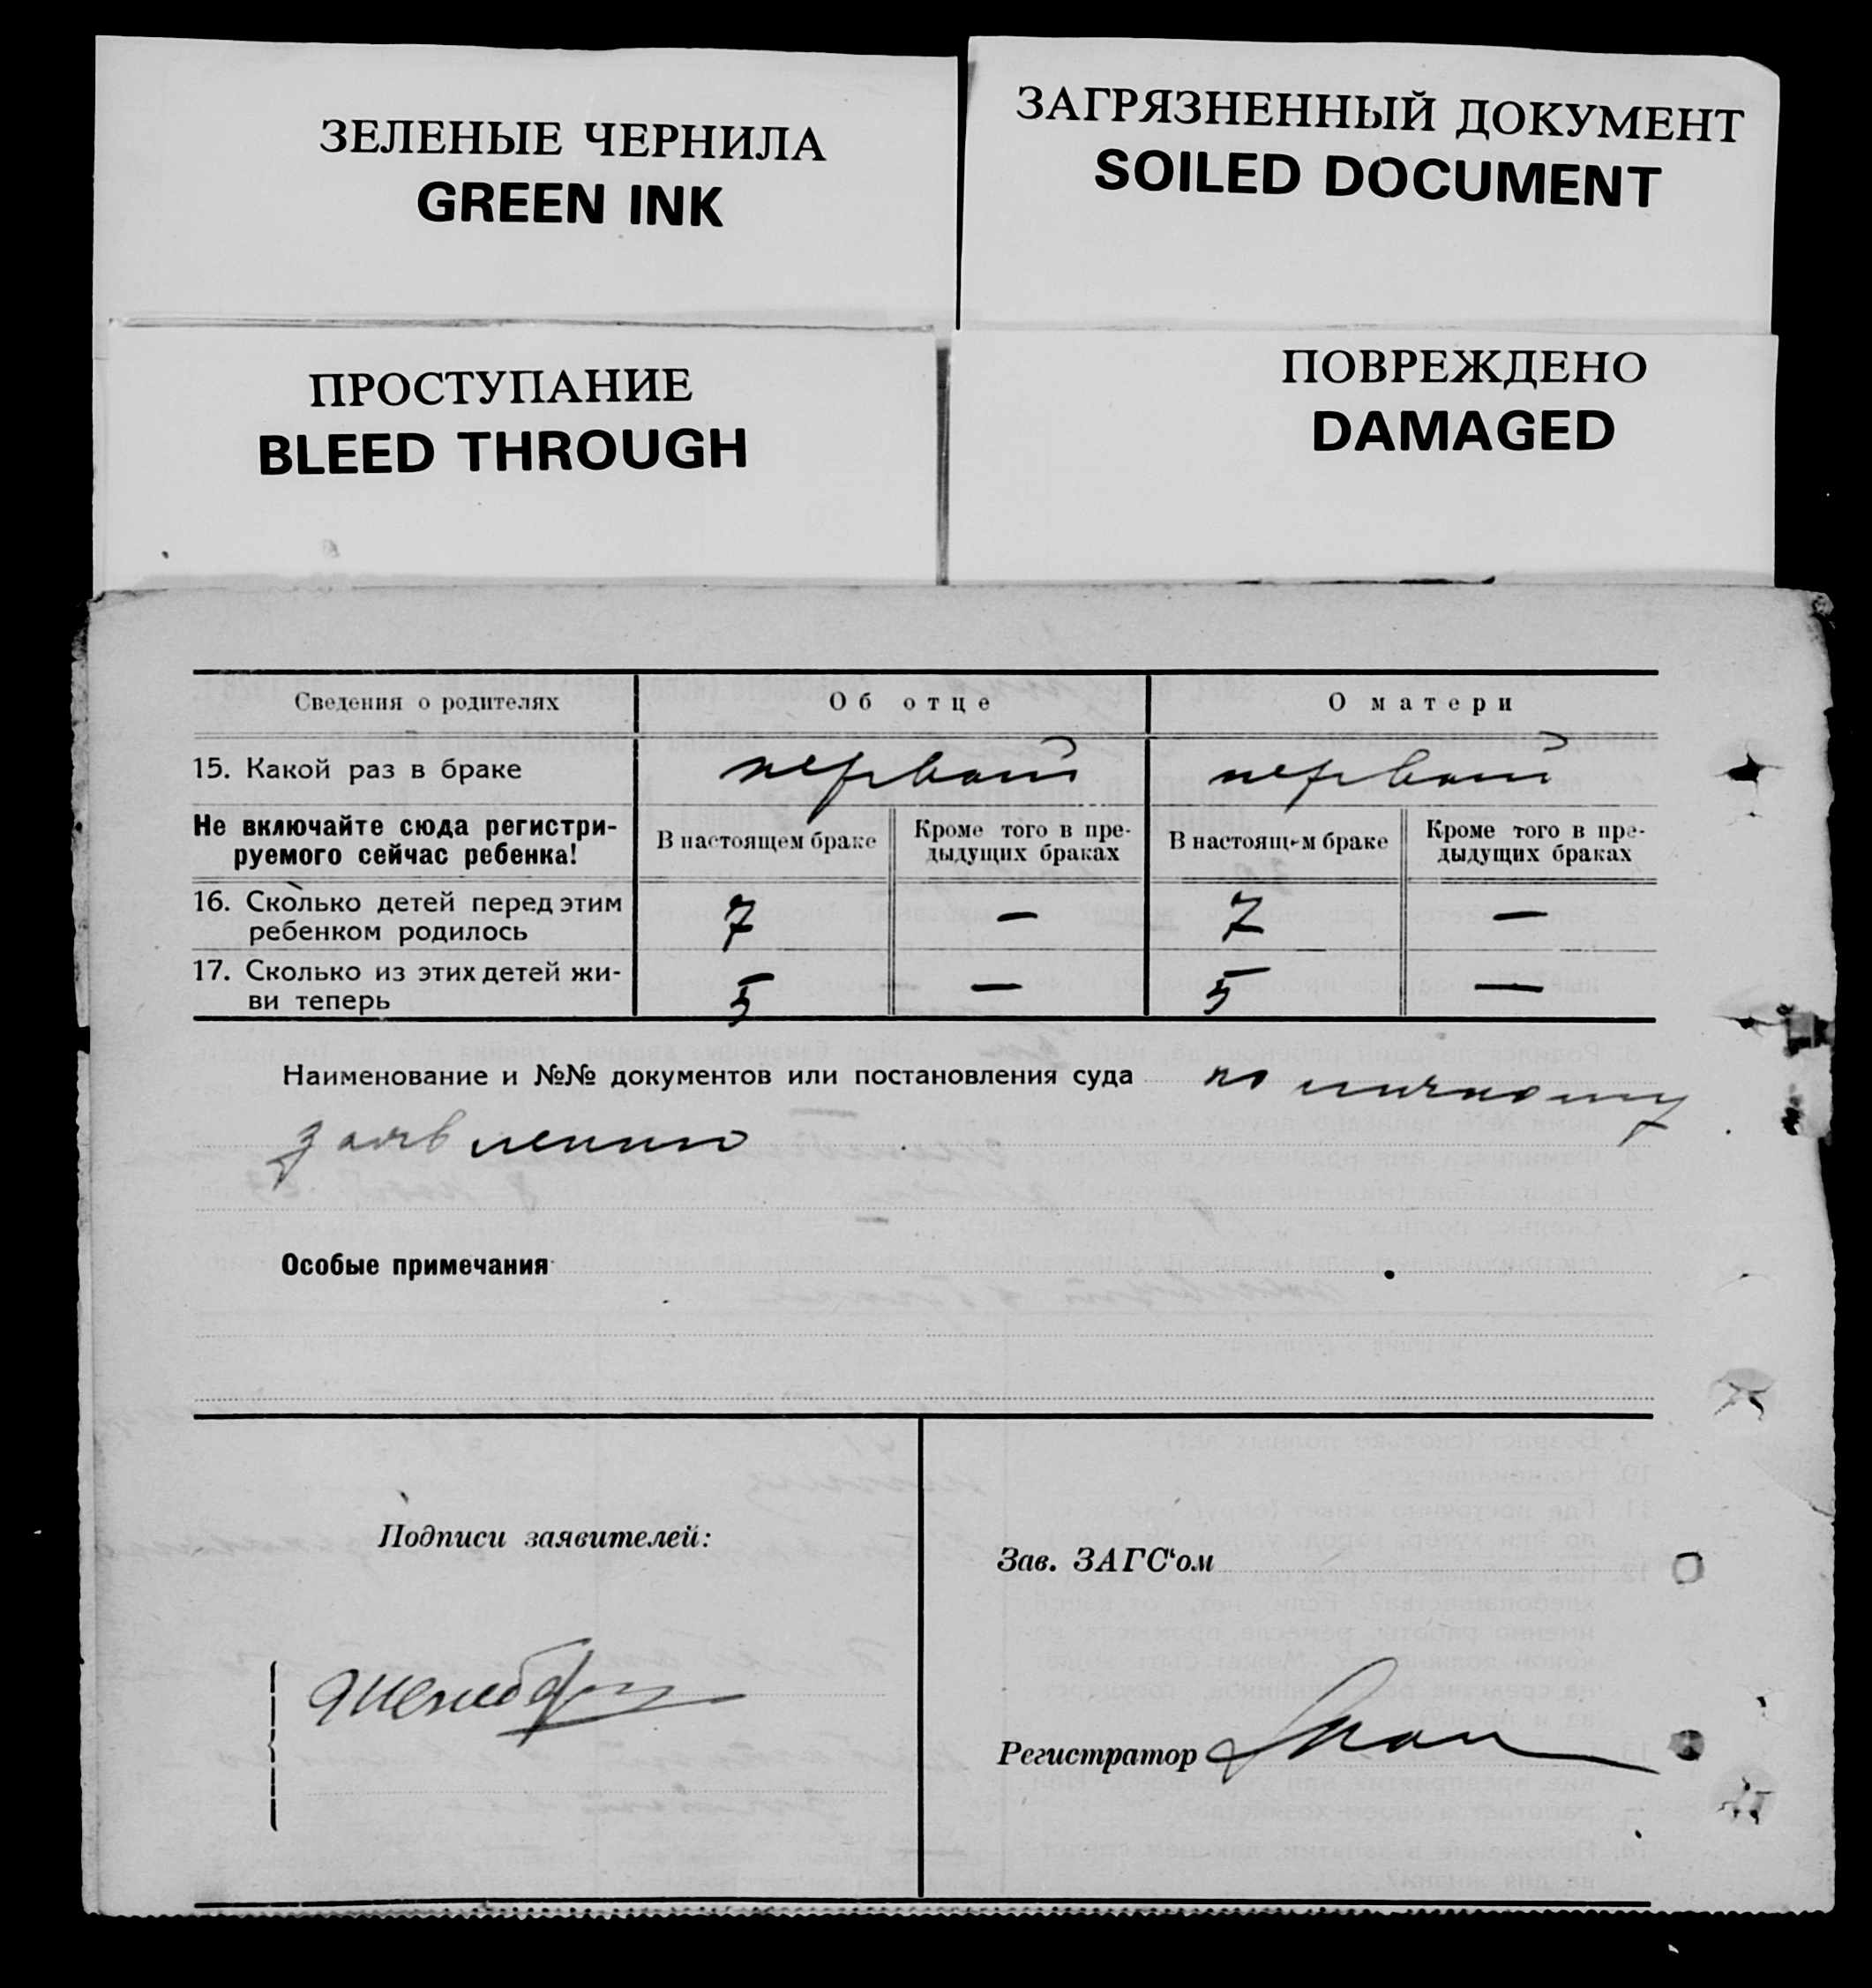 ЗЕЛЕНЫЕ ЧЕРНИЛА
GREEN INK
ЗАГРЯЗНЕННЫЙ ДОКУМЕНТ
SOILED DOCUMENT
ПРОСТУПАНИЕ
BLEED THROUGH
ПОВРЕЖДЕНО
DAMAGED
Сведения о родителях Об отце О матери
15. Какой раз в браке первый первый
Не включайте сюда регистри-
руемого сейчас ребенка!
В настоящем браке
Кроме того в пре-
дыдущих браках
В настоящем браке
Кроме того в пре-
дыдущих браках
16. Сколько детей перед этим
ребенком родилось
7 — 7 —
17. Сколько из этих детей жи-
ви теперь
5 — 5 —
Наименование и №№ документов или постановления суда по личному
заявлению
Особые примечания
Подписи заявителей:
Зав. ЗАГС‘ом
Регистратор